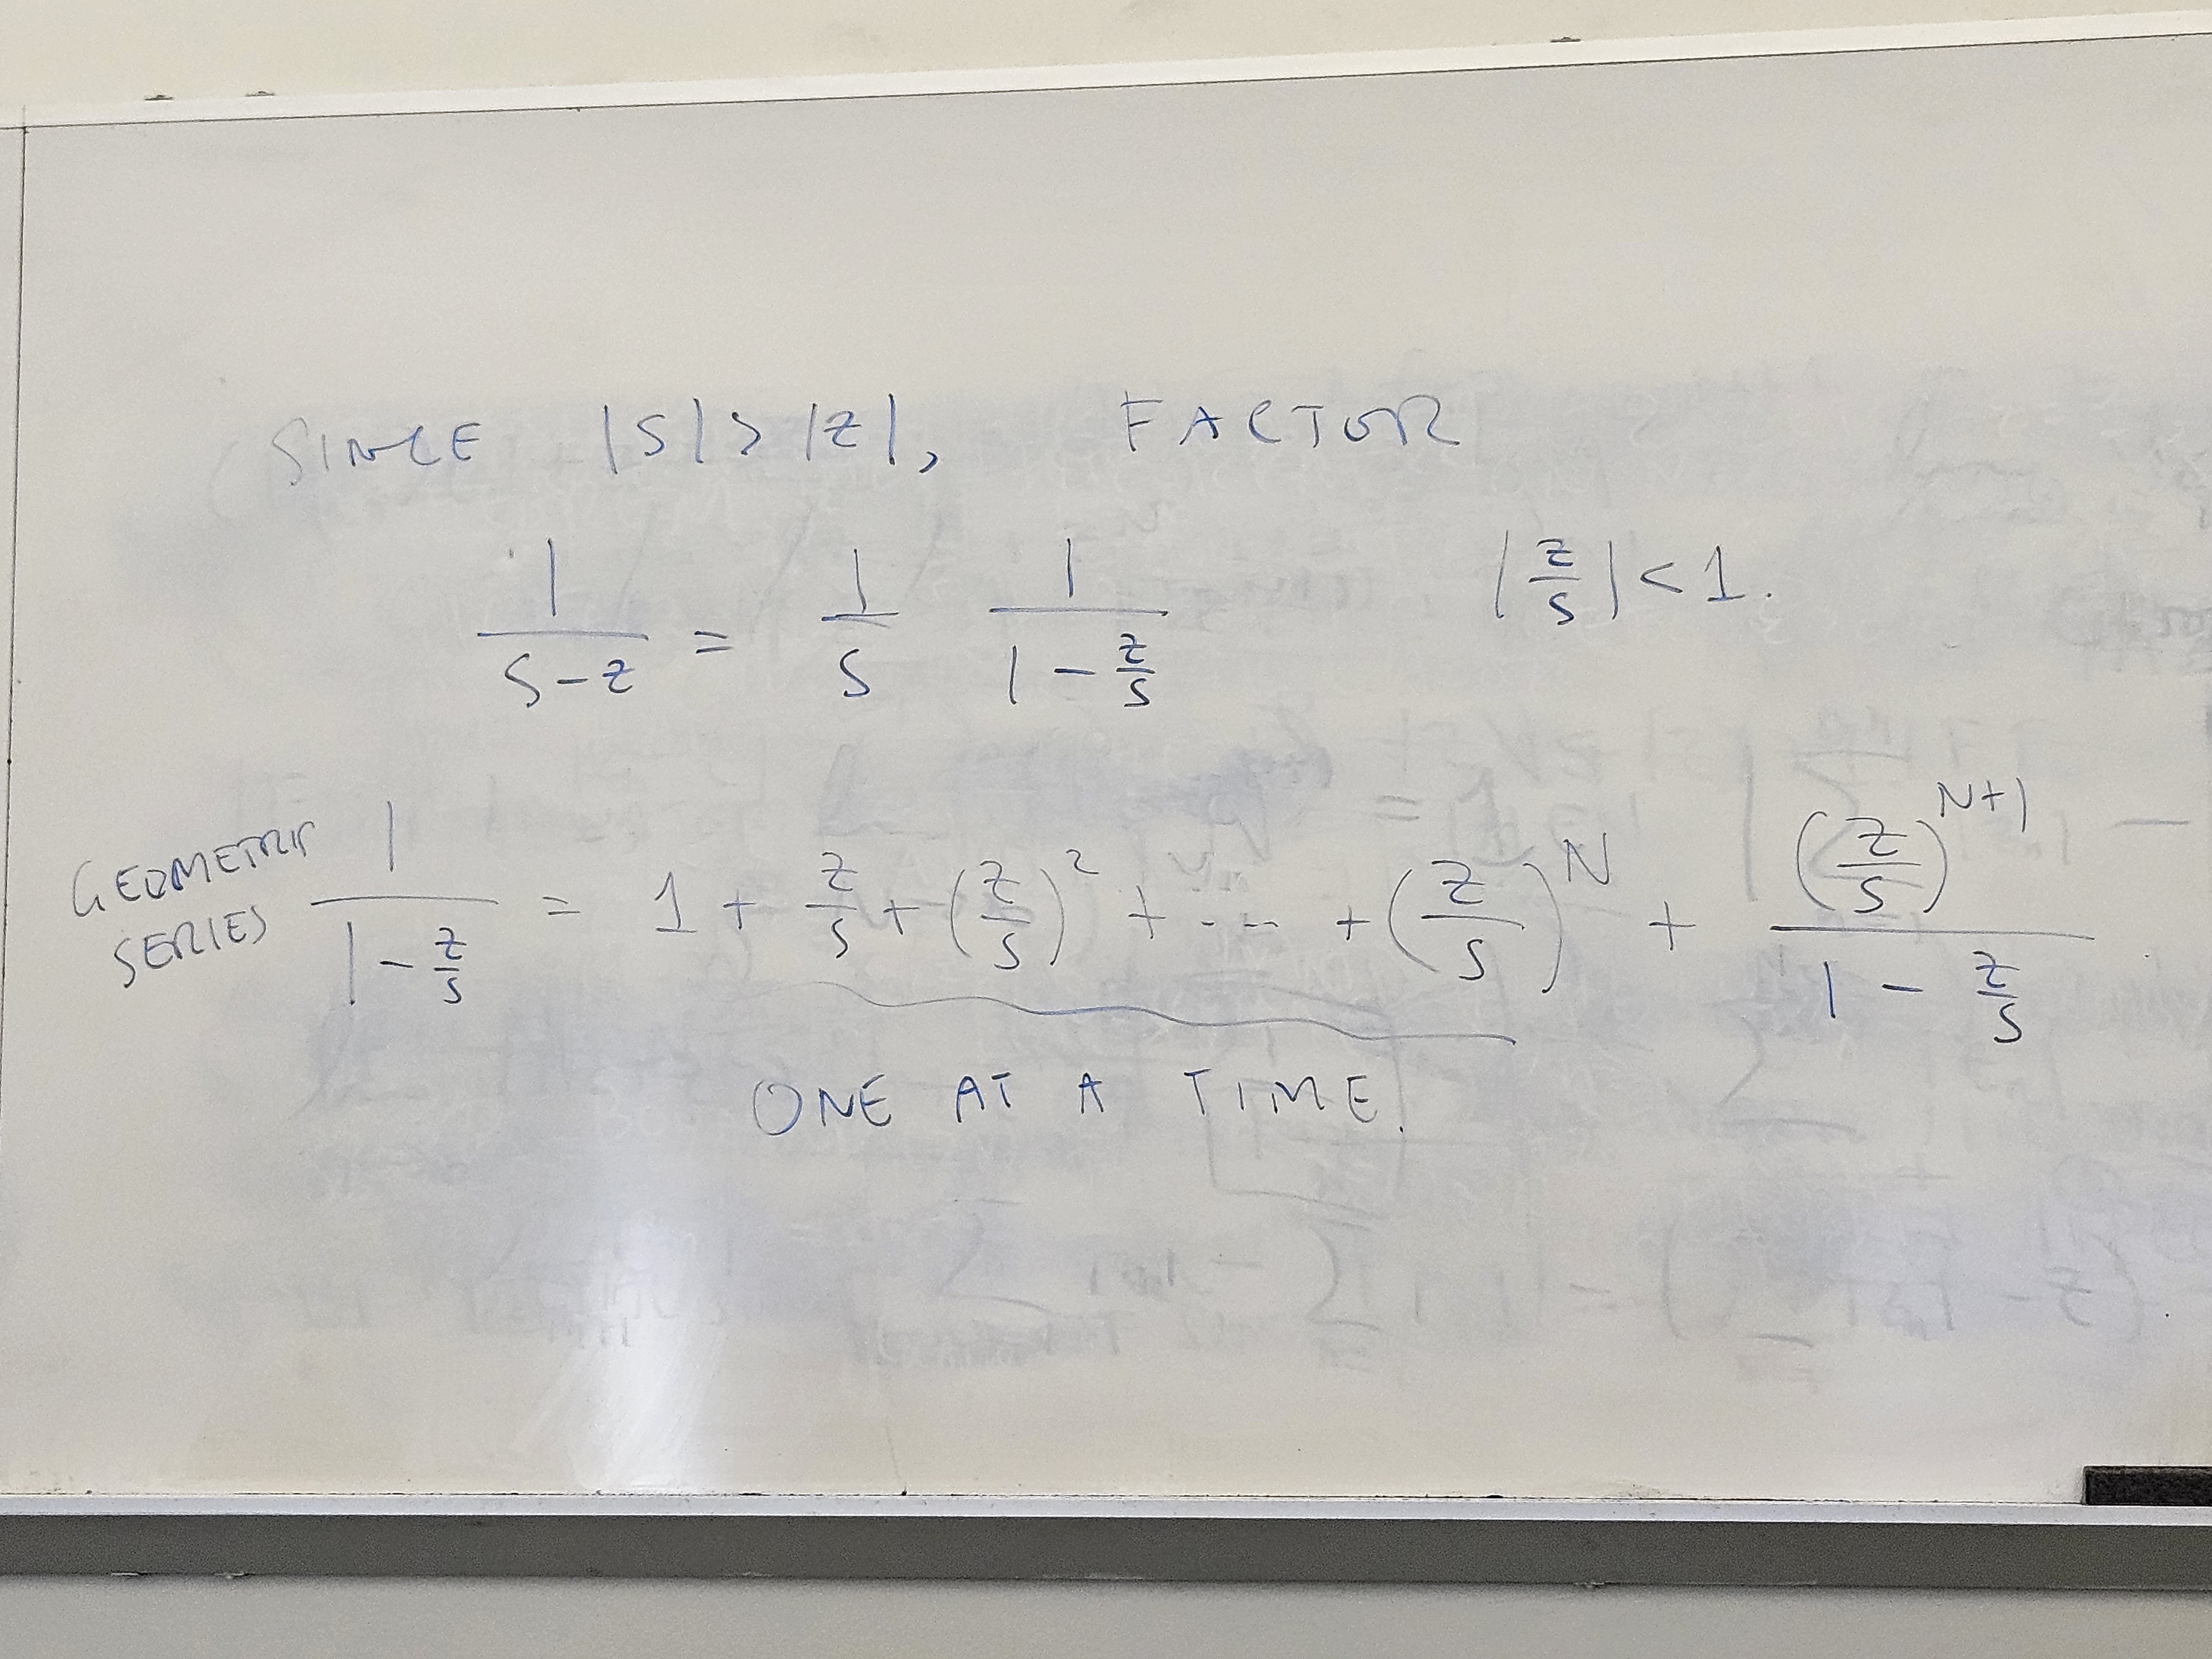 SINCE |s| > |z|, FACTOR
1/(s-z) = 1/s 1/(1 - z/s) |z/s| < 1.
GEOMETRIC SERIES 1/(1 - z/s) = 1 + z/s + (z/s)^2 + ... + (z/s)^N + (z/s)^(N+1)/(1 - z/s)
ONE AT A TIME.